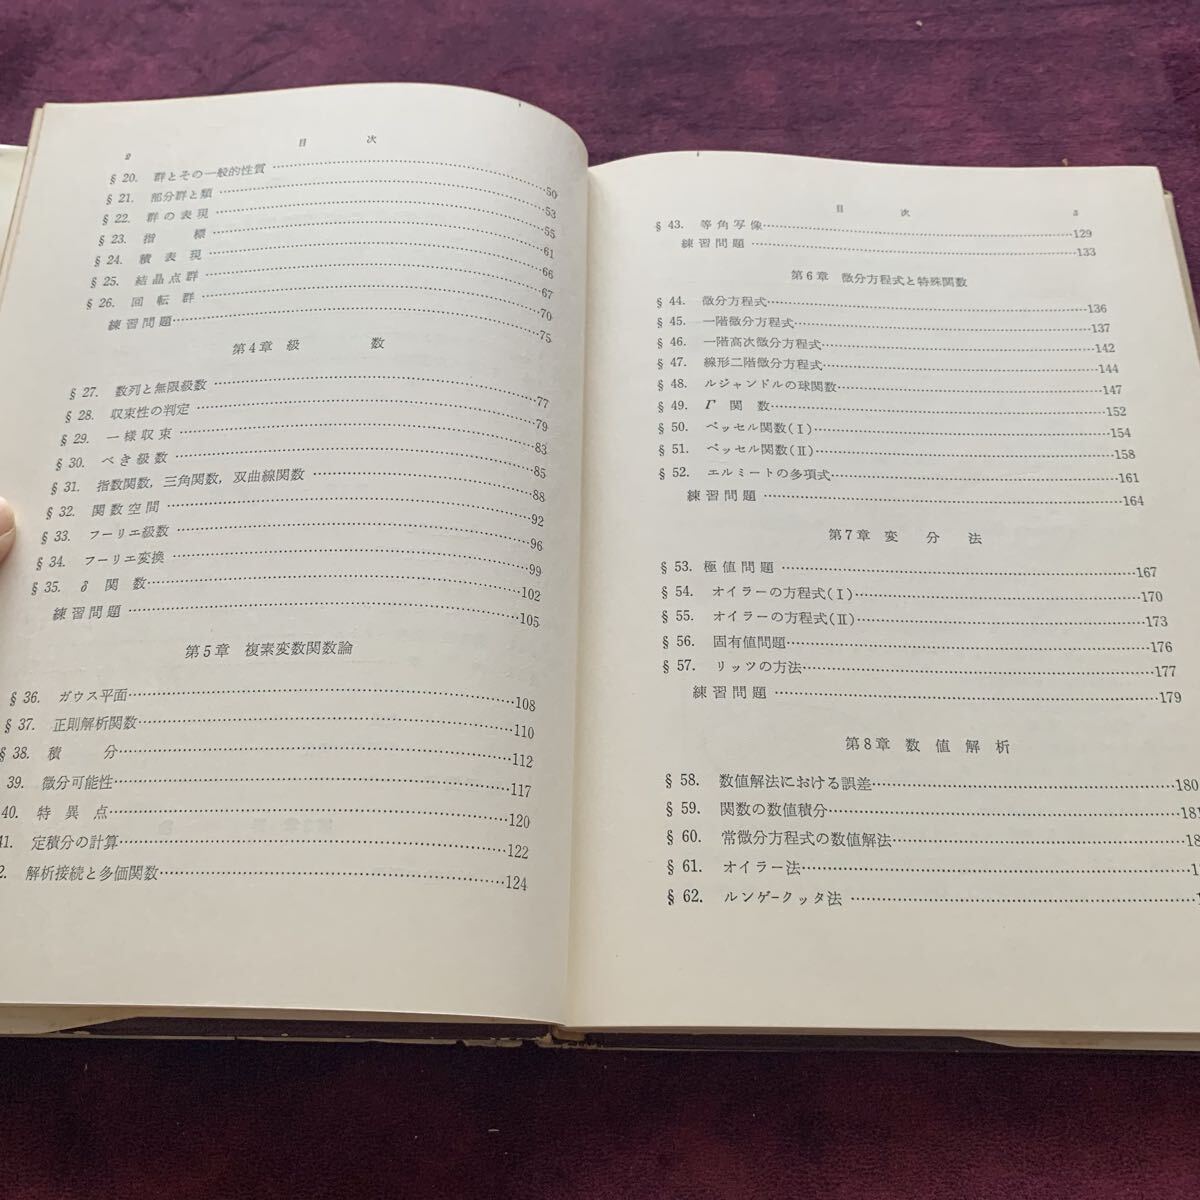 2 目次
§ 20. 群とその一般的性質……50
§ 21. 部分群と類……53
§ 22. 群の表現……55
§ 23. 指標……61
§ 24. 積表現……66
§ 25. 結晶点群……67
§ 26. 回転群……70
練習問題……75
第4章 級数
§ 27. 数列と無限級数……77
§ 28. 収束性の判定……79
§ 29. 一様収束……83
§ 30. べき級数……85
§ 31. 指数関数, 三角関数, 双曲線関数……88
§ 32. 関数空間……92
§ 33. フーリエ級数……96
§ 34. フーリエ変換……99
§ 35. δ 関数……102
練習問題……105
第5章 複素変数関数論
§ 36. ガウス平面……108
§ 37. 正則解析関数……110
§ 38. 積分……112
39. 微分可能性……117
40. 特異点……120
41. 定積分の計算……122
2. 解析接続と多価関数……124
目次 3
§ 43. 等角写像……129
練習問題……133
第6章 微分方程式と特殊関数
§ 44. 微分方程式……136
§ 45. 一階微分方程式……137
§ 46. 一階高次微分方程式……142
§ 47. 線形二階微分方程式……144
§ 48. ルジャンドルの球関数……147
§ 49. Γ 関数……152
§ 50. ベッセル関数(I)……154
§ 51. ベッセル関数(II)……158
§ 52. エルミートの多項式……161
練習問題……164
第7章 変分法
§ 53. 極値問題……167
§ 54. オイラーの方程式(I)……170
§ 55. オイラーの方程式(II)……173
§ 56. 固有値問題……176
§ 57. リッツの方法……177
練習問題……179
第8章 数値解析
§ 58. 数値解法における誤差……180
§ 59. 関数の数値積分……181
§ 60. 常微分方程式の数値解法……18
§ 61. オイラー法……1
§ 62. ルンゲークッタ法……1